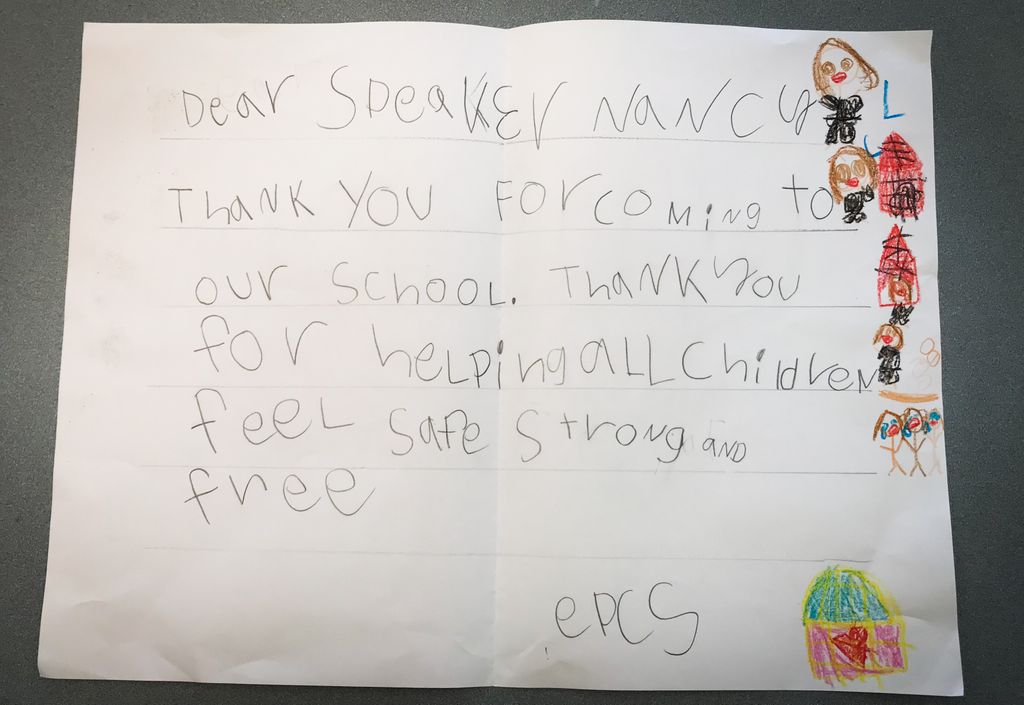 Dear SpeaKEr NaNCy
ThaNK YOU FOr COMiNg to
our SChOOL. ThaNK YOU
for heLping aLL Children
feeL Safe StroNg aND
free
ePCS
L